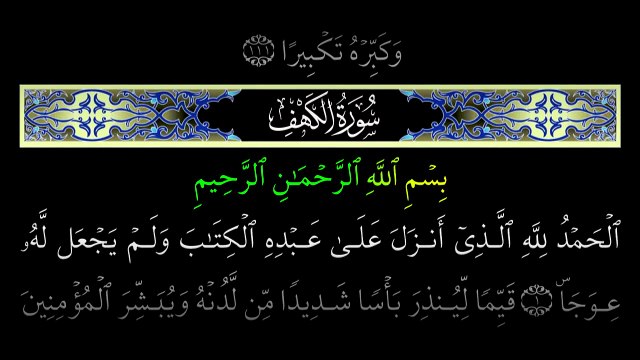 وَكَبِّرۡهُ تَكۡبِيرَۢا ۝١١١
سُورَةُ الكَهۡفِ
بِسۡمِ ٱللَّهِ ٱلرَّحۡمَٰنِ ٱلرَّحِيمِ
ٱلۡحَمۡدُ لِلَّهِ ٱلَّذِيٓ أَنزَلَ عَلَىٰ عَبۡدِهِ ٱلۡكِتَٰبَ وَلَمۡ يَجۡعَل لَّهُۥ
عِوَجَاۜ ۝١ قَيِّمٗا لِّيُنذِرَ بَأۡسٗا شَدِيدٗا مِّن لَّدُنۡهُ وَيُبَشِّرَ ٱلۡمُؤۡمِنِينَ